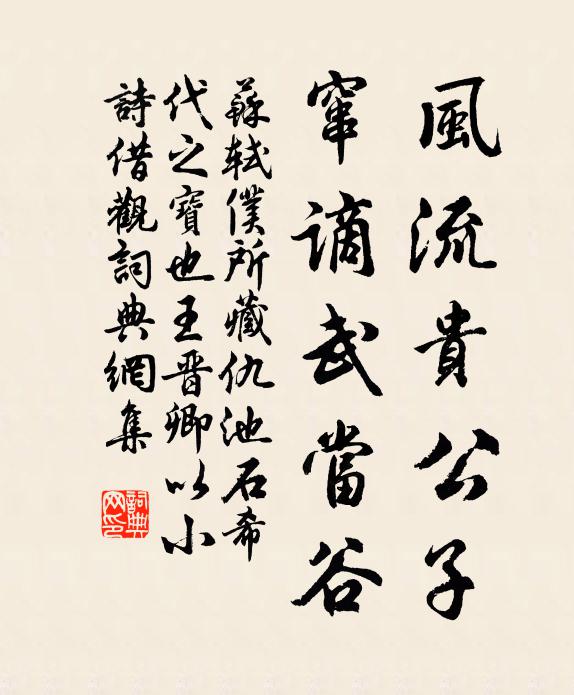 風流貴公子
竄謫武當谷
蘇軾僕所藏仇池石希
代之寶也王晋卿以小
詩借觀詞典網集
詞典网印